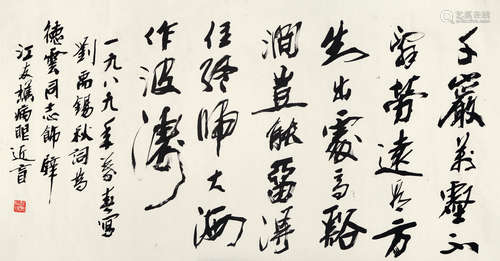 千巖萬壑不
辭勞遠看方
知出處高谿
澗豈能留得
住終歸大海
作波濤
一九八九年暮春寫
劉禹錫秋詞為
德雲同志飾壁
江友樵病眼近盲